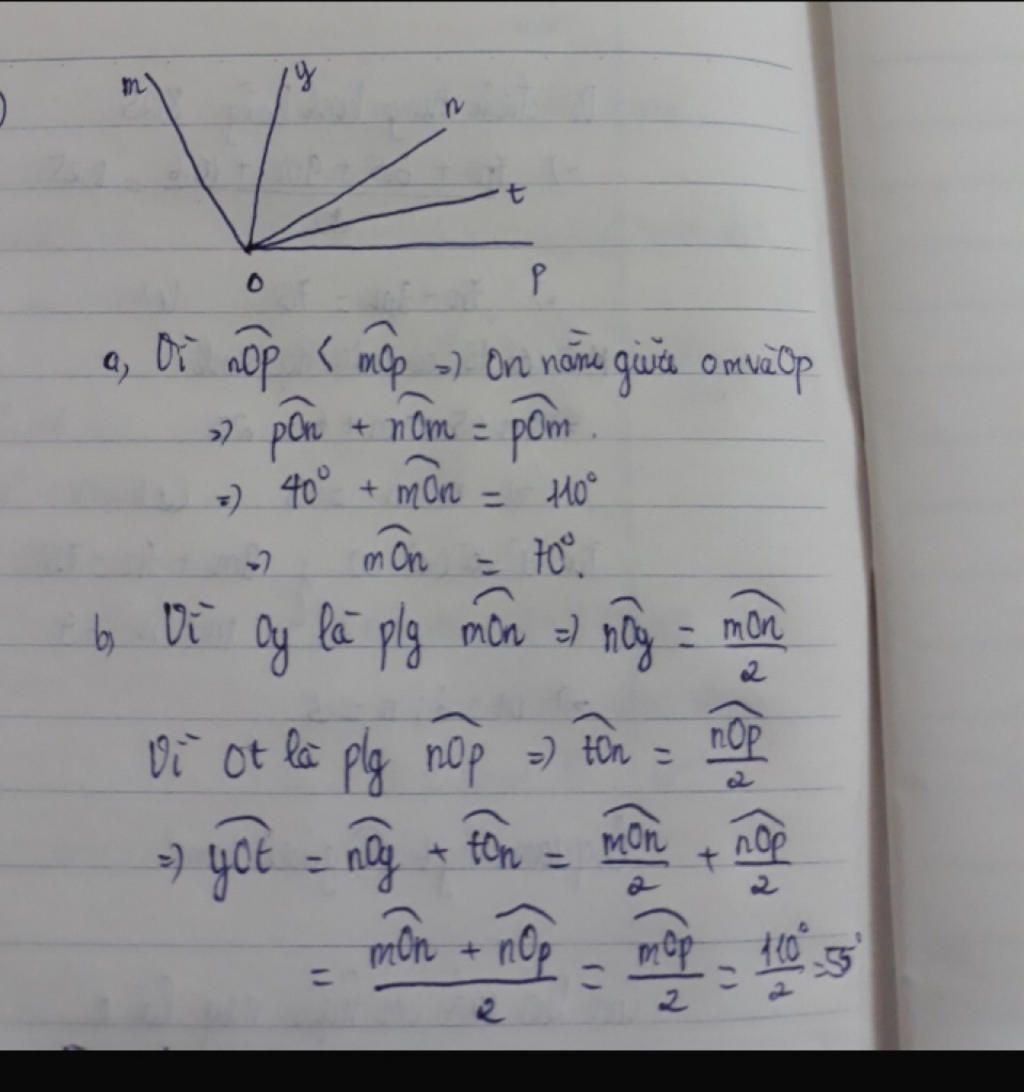 m y n t
O p
a, Vì nOp < mOp => On nằm giữa Om và Op
=> pOn + nOm = pOm.
=> 40° + mOn = 110°
=> mOn = 70°.
b, Vì Oy là plg mOn => nOy = mOn/2
Vì Ot là plg nOp => tOn = nOp/2
=> yOt = nOy + tOn = mOn/2 + nOp/2
= (mOn + nOp)/2 = mOp/2 = 110°/2 = 55°